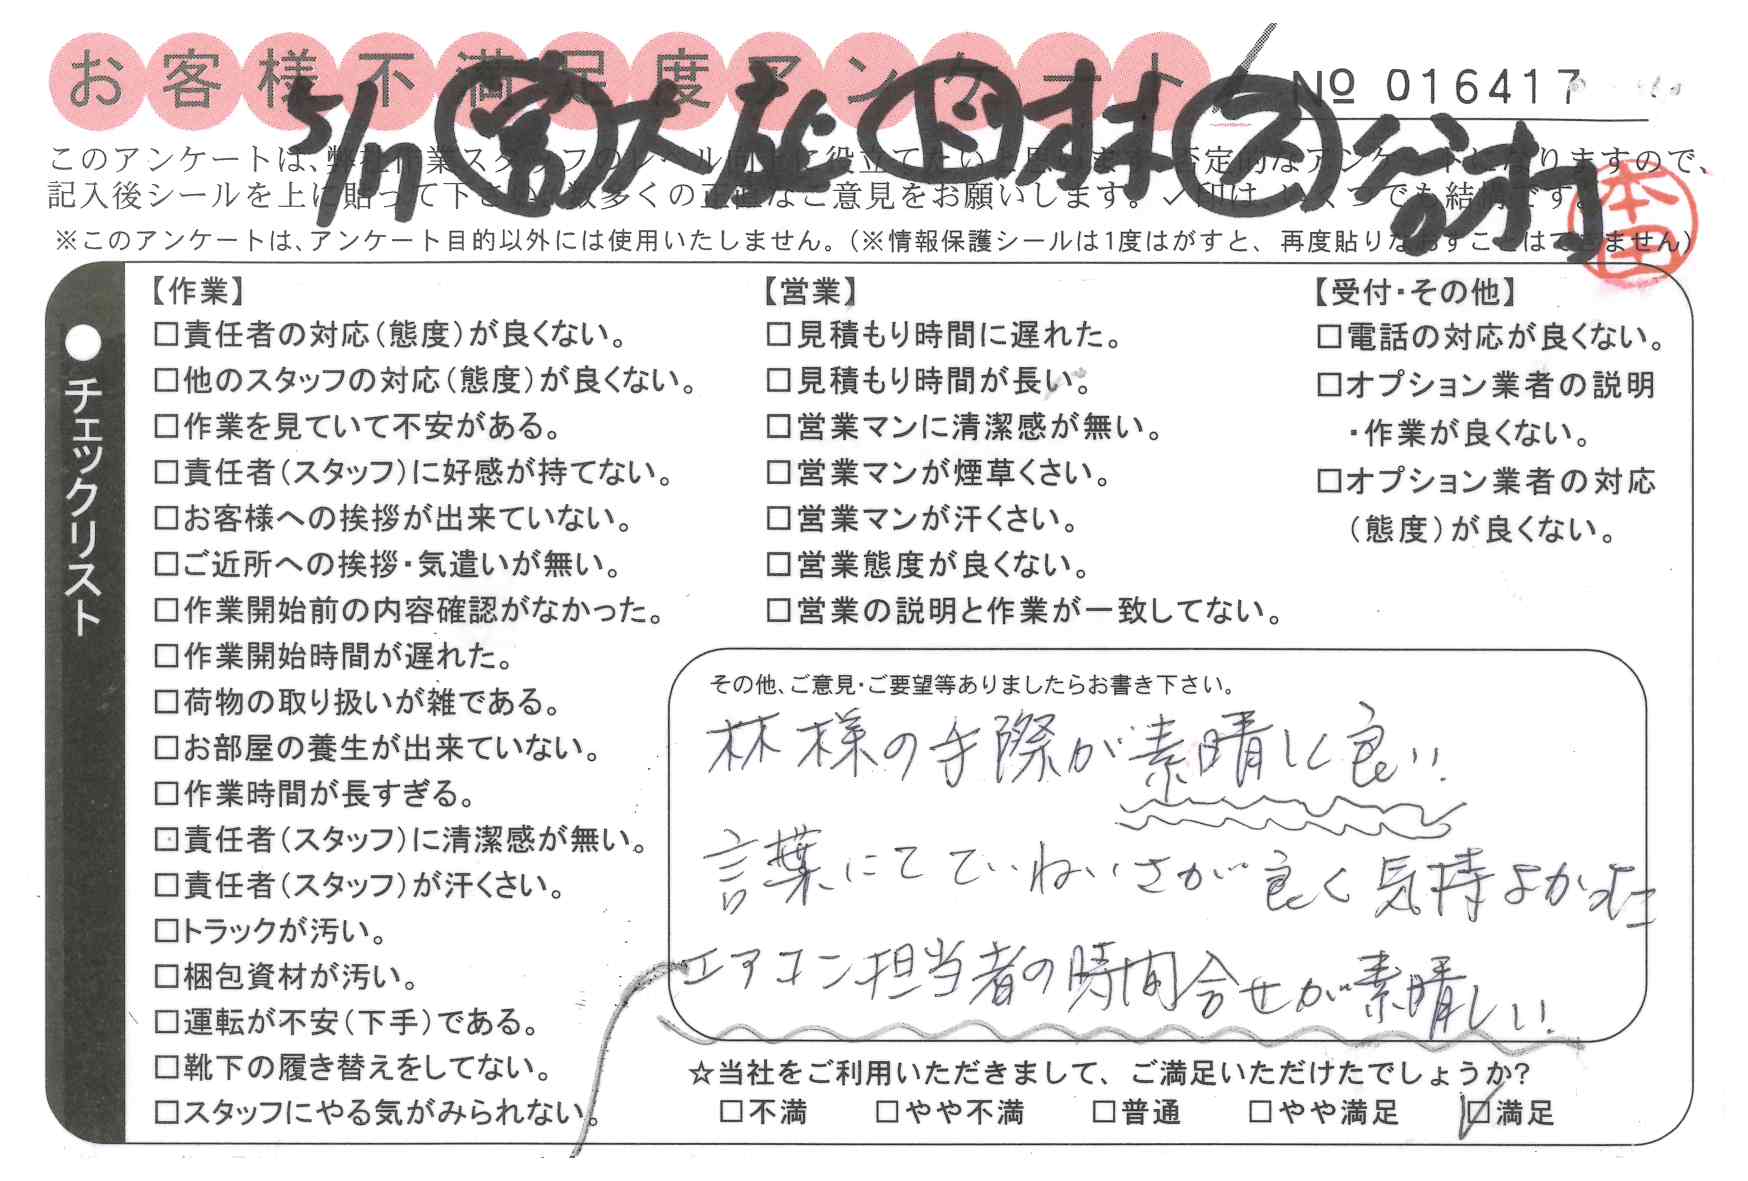 お客様不満足度アンケート
№ 016417
5/17 営 大庭 ド 林 ス 谷村
このアンケートは、弊社作業スタッフのレベル向上に役立てたいと思います。否定的なアンケートになりますので、
記入後シールを上に貼って下さい。数多くの正直なご意見をお願いします。✓印は、いくつでも結構です。
※このアンケートは、アンケート目的以外には使用いたしません。(※情報保護シールは1度はがすと、再度貼りなおすことはできません)
本田
●チェックリスト
【作業】
□責任者の対応(態度)が良くない。
□他のスタッフの対応(態度)が良くない。
□作業を見ていて不安がある。
□責任者(スタッフ)に好感が持てない。
□お客様への挨拶が出来ていない。
□ご近所への挨拶・気遣いが無い。
□作業開始前の内容確認がなかった。
□作業開始時間が遅れた。
□荷物の取り扱いが雑である。
□お部屋の養生が出来ていない。
□作業時間が長すぎる。
□責任者(スタッフ)に清潔感が無い。
□責任者(スタッフ)が汗くさい。
□トラックが汚い。
□梱包資材が汚い。
□運転が不安(下手)である。
□靴下の履き替えをしてない。
□スタッフにやる気がみられない。
【営業】
□見積もり時間に遅れた。
□見積もり時間が長い。
□営業マンに清潔感が無い。
□営業マンが煙草くさい。
□営業マンが汗くさい。
□営業態度が良くない。
□営業の説明と作業が一致してない。
【受付・その他】
□電話の対応が良くない。
□オプション業者の説明
・作業が良くない。
□オプション業者の対応
(態度)が良くない。
その他、ご意見・ご要望等ありましたらお書き下さい。
林様の手際が素晴しく良い.
言葉にてていねいさが良く気持よかった
エアコン担当者の時間合せが素晴しい.
☆当社をご利用いただきまして、ご満足いただけたでしょうか?
□不満 □やや不満 □普通 □やや満足 ☑満足